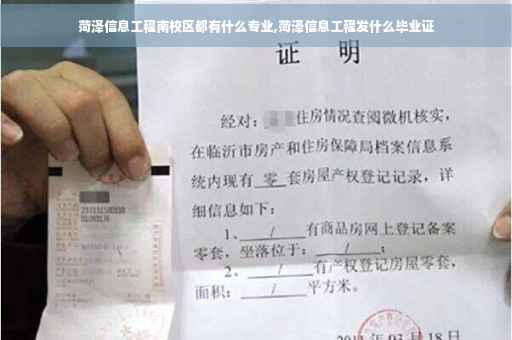 菏泽信息工程南校区都有什么专业,菏泽信息工程发什么毕业证
证 明
经对:住房情况查阅微机核实,
在临沂市房产和住房保障局档案信息系
统内现有 零 套房屋产权登记记录,详
细信息如下:
1、 / 有商品房网上登记备案
零套,坐落位于: / ;
2、 / 有产权登记房屋零套,
面积: / 平方米。
月18日